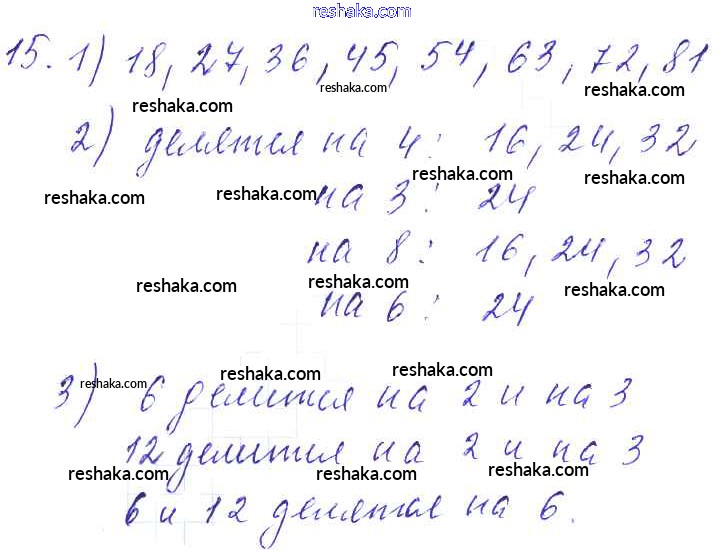 reshaka.com
15. 1) 18, 27, 36, 45, 54, 63, 72, 81
reshaka.com reshaka.com reshaka.com
2) делятся на 4: 16, 24, 32
reshaka.com reshaka.com reshaka.com reshaka.com
на 3: 24
на 8: 16, 24, 32
reshaka.com reshaka.com reshaka.com
на 6: 24
reshaka.com reshaka.com reshaka.com
3) 6 делится на 2 и на 3
12 делится на 2 и на 3
reshaka.com reshaka.com reshaka.com
6 и 12 делятся на 6.